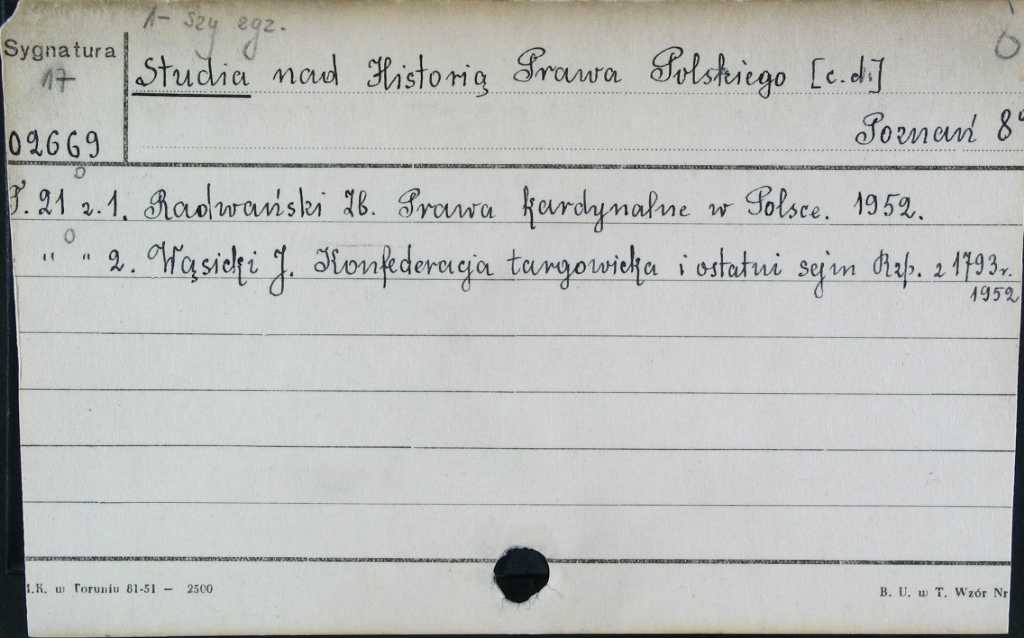 1-szy egz.
Sygnatura
17
Studia nad Historią Prawa Polskiego [c.d.]
02669
Poznań 8°
T. 21 z. 1. Radwański Zb. Prawa kardynalne w Polsce. 1952.
" " 2. Wąsicki J. Konfederacja targowicka i ostatni sejm Rzp. z 1793 r.
1952
.K. w Toruniu 81-51 — 2500
B. U. w T. Wzór Nr